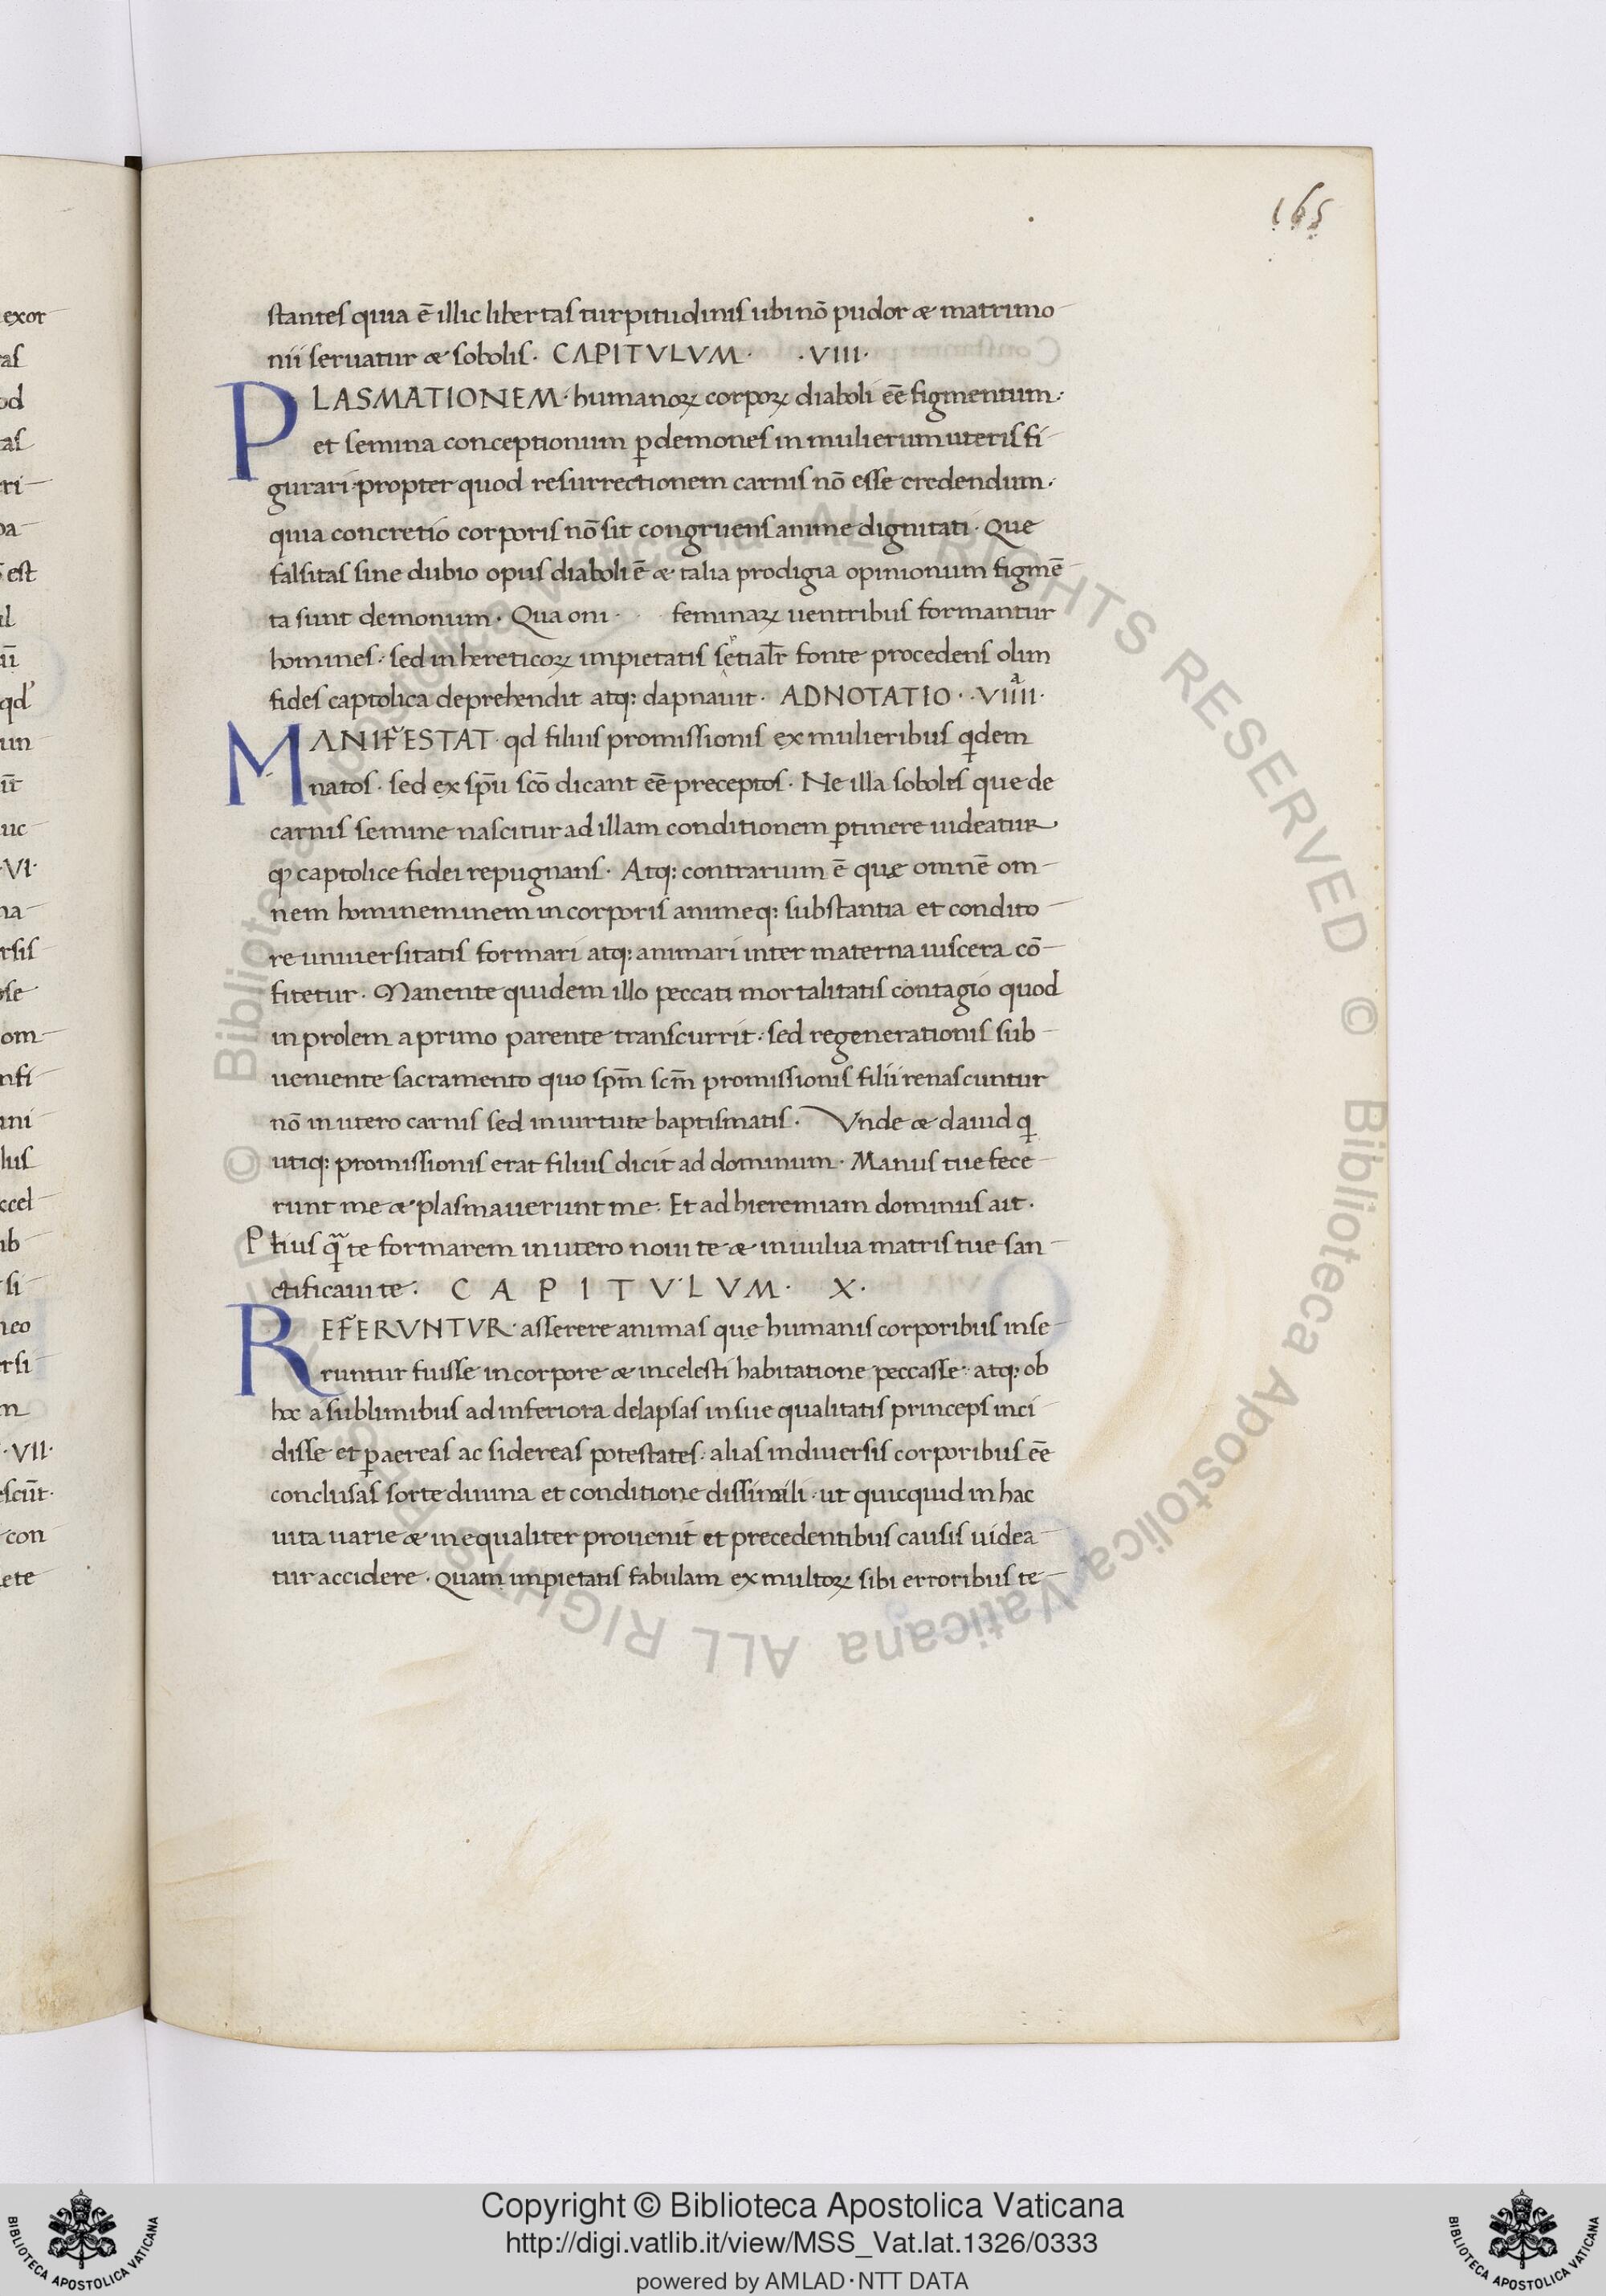 165
stantes quia ē illic libertas turpitudinis ubi nō pudor æ matrimo
nii seruatur æ sobolis · CAPITVLVM · · VIII ·
PLASMATIONEM · humanoꝝ corpoꝝ diaboli eē figmentum :
et semina conceptionum ꝑ demones in mulierum uteris fi
gurari · propter quod resurrectionem carnis nō esse credendum ·
quia concretio corporis nō sit congruens anime dignitati · Que
falsitas sine dubio opus diaboli ē æ talia prodigia opinionum figmē
ta sunt demonum · Qua oni · feminaꝝ uentribus formantur
homines · sed in hereticoꝝ impietatis fonte procedens olim
fides captolica deprehendit atq: dapnauit · ADNOTATIO · · VIIII ·
MANIFESTAT · qd filius promissionis ex mulieribus qdem
natos · sed ex spū scō dicant eē preceptos · Ne illa sobolis que de
carnis semine nascitur ad illam conditionem ꝑtinere uideatur
qꝫ captolice fidei repugnans · Atq: contrarium ē que omnē om
nem homineminem in corporis animeq: substantia et condito
re uniuersitatis formari atq: animari inter materna uiscera cō
fitetur · Manente quidem illo peccati mortalitatis contagio quod
in prolem a primo parente transcurrit · sed regenerationis sub
ueniente sacramento quo spm̄ scm̄ promissionis filii renascuntur
nō in utero carnis sed in uirtute baptismatis · Vnde æ dauid q
utiq: promissionis erat filius dicit ad dominum · Manus tue fece
runt me æ plasmauerunt me · Et ad hieremiam dominus ait ·
Prius te formarem in utero noui te æ in uulua matris tue san
ctificaui te · CAPITVLVM · X ·
REFERVNTVR · asserere animas que humanis corporibus inse
runtur fuisse in corpore æ in celesti habitatione peccasse · atq: ob
hoc a sublimibus ad inferiora delapsas in sue qualitatis princeps inci
disse et ꝑ aereas ac sidereas potestates · alias in diuersis corporibus eē
conclusas sorte diuina et conditione dissimili · ut quicquid in hac
uita uarie æ inequaliter prouenit et precedentibus causis uidea
tur accidere · Quam impietatis fabulam ex multoꝝ sibi erroribus te
Copyright © Biblioteca Apostolica Vaticana
http://digi.vatlib.it/view/MSS_Vat.lat.1326/0333
powered by AMLAD·NTT DATA